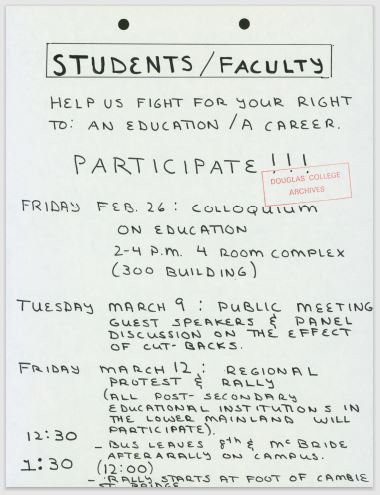 STUDENTS/FACULTY
HELP US FIGHT FOR YOUR RIGHT
TO: AN EDUCATION / A CAREER.
PARTICIPATE!!!
DOUGLAS COLLEGE
ARCHIVES
FRIDAY FEB. 26: COLLOQUIUM
ON EDUCATION
2-4 P.M. 4 ROOM COMPLEX
(300 BUILDING)
TUESDAY MARCH 9: PUBLIC MEETING
GUEST SPEAKERS & PANEL
DISCUSSION ON THE EFFECT
OF CUT-BACKS.
FRIDAY MARCH 12: REGIONAL
PROTEST & RALLY
(ALL POST-SECONDARY
EDUCATIONAL INSTITUTIONS IN
THE LOWER MAINLAND WILL
PARTICIPATE).
12:30 - BUS LEAVES 8th & McBRIDE
AFTER A RALLY ON CAMPUS.
1:30 (12:00)
- RALLY STARTS AT FOOT OF CAMBIE
ST. BRIDGE